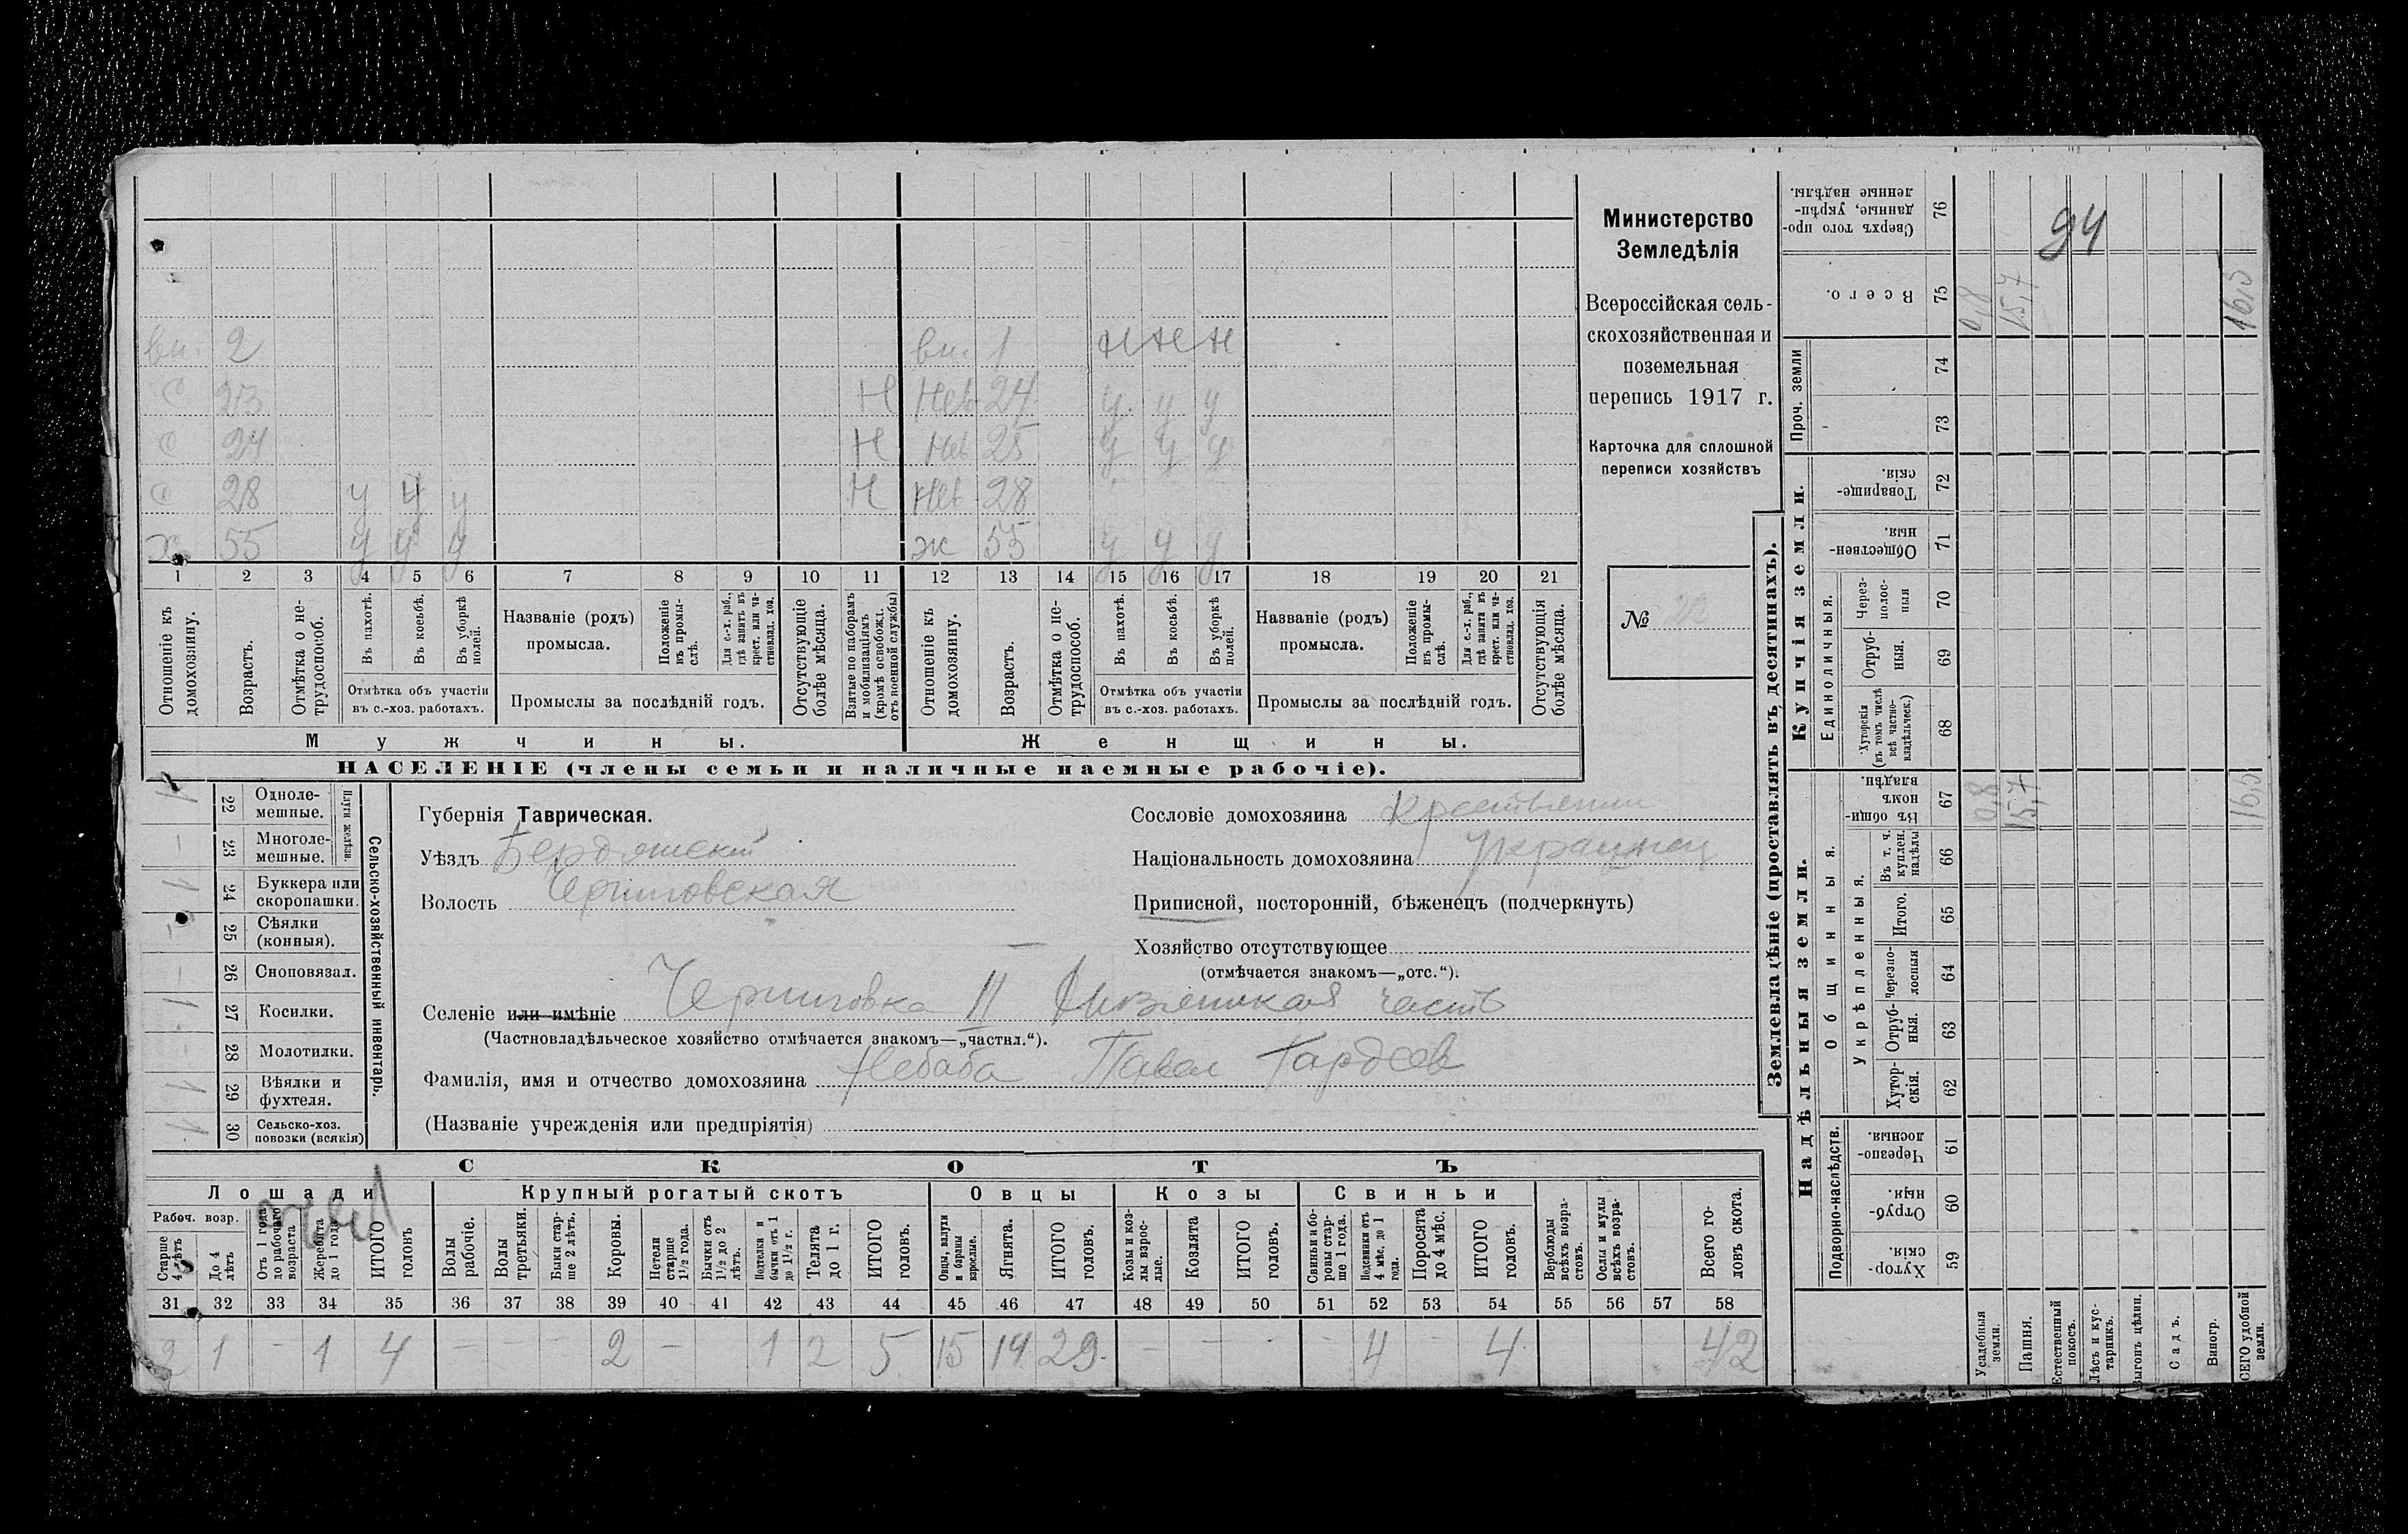 вн. 2 вн. 1 н н н
с 23 н нев 24 у у у
с 24 н нев 25 у у у
с 28 у у у н нев 28
х 55 у у у ж 55 у у у
1 2 3 4 5 6 7 8 9 10 11 12 13 14 15 16 17 18 19 20 21
Отношеніе къ домохозяину.
Возрастъ.
Отмѣтка о не-трудоспособ.
Въ пахотѣ.
Въ косьбѣ.
Въ уборкѣ полей.
Отмѣтка объ участіи
въ с.-хоз. работахъ.
Названіе (родъ)
промысла.
Положеніе въ промы-слѣ.
Для с.-х. раб., гдѣ занятъ въ крест. или ча-стновлад. хоз.
Промыслы за послѣдній годъ.
Отсутствующіе болѣе мѣсяца.
Взятые по наборамъ и мобилизаціямъ (кромѣ освобожд. отъ военной службы)
Отношеніе къ домохозяину.
Возрастъ.
Отмѣтка о не-трудоспособ.
Въ пахотѣ.
Въ косьбѣ.
Въ уборкѣ полей.
Отмѣтка объ участіи
въ с.-хоз. работахъ.
Названіе (родъ)
промысла.
Положеніе въ промы-слѣ.
Для с.-х. раб., гдѣ занята въ крест. или ча-стновлад. хоз.
Промыслы за послѣдній годъ.
Отсутствующія болѣе мѣсяца.
Мужчины. Женщины.
НАСЕЛЕНІЕ (члены семьи и наличные наемные рабочіе).
Министерство
Земледѣлія
Всероссійская сель-
скохозяйственная и
поземельная
перепись 1917 г.
Карточка для сплошной
переписи хозяйствъ
№
Сельско-хозяйственный инвентарь.
Плуги желѣзн.
22 Одноле-мешные.
23 Многоле-мешные.
24 Буккера или скоропашки.
25 Сѣялки (конныя).
26 Сноповязал.
27 Косилки.
28 Молотилки.
29 Вѣялки и фухтеля.
30 Сельско-хоз. повозки (всякія)
Губернія Таврическая.
Уѣздъ Бердянскій
Волость Черниговская
Сословіе домохозяина
Національность домохозяина Украинец
Приписной, посторонній, бѣженецъ (подчеркнуть)
Хозяйство отсутствующее
(отмѣчается знакомъ—„отс.“).
Селеніе или имѣніе Черниговка II часть
(Частновладѣльческое хозяйство отмѣчается знакомъ—„частвл.“).
Фамилія, имя и отчество домохозяина Небаба Павел Гордеев
(Названіе учрежденія или предпріятія)
СКОТЪ
Лошади Крупный рогатый скотъ Овцы Козы Свиньи
Рабоч. возр.
Старше 4 лѣтъ
До 4 лѣтъ
Отъ 1 года до рабочаго возраста
Жеребята до 1 года
ИТОГО головъ
Волы рабочіе.
Волы третьяки.
Быки стар-ше 2 лѣтъ.
Коровы.
Нетели старше 1½ года.
Бычки отъ 1½ до 2 лѣтъ.
Подтелки и бычки отъ 1 до 1½ г.
Телята до 1 г.
ИТОГО головъ.
Овцы, валухи и бараны взрослые.
Ягнята.
ИТОГО головъ.
Козы и коз-лы взрос-лые.
Козлята
ИТОГО головъ.
Свиньи и бо-ровы стар-ше 1 года.
Подсвинки отъ 4 мѣс. до 1 года.
Поросята до 4 мѣс.
ИТОГО головъ.
Верблюды всѣхъ возра-стовъ.
Ослы и мулы всѣхъ возра-стовъ.
Всего го-ловъ скота.
31 32 33 34 35 36 37 38 39 40 41 42 43 44 45 46 47 48 49 50 51 52 53 54 55 56 57 58
2 1 - 1 4 - - 2 - 1 2 5 15 14 29 - - - - 4 - 4 42
Землевладѣніе (проставлять въ десятинахъ).
Надѣльныя земли. Купчія земли.
Проч. земли
Подворно-наслѣдств.
Общинныя.
Укрѣпленныя.
Единоличныя.
Сверхъ того про-данные, укрѣп-ленные надѣлы. 76
Всего. 75 0,8 15,7 16,5
74
73
Товарище-скія. 72
Обществен-ныя. 71
Через-полос-ныя 70
Отруб-ныя. 69
Хуторскія (въ томъ числѣ всѣ частно-владѣльческ.) 68
Въ общин-номъ владѣн. 67 0,8 15,7 16,5
Въ т. ч. куплен. надѣлы 66
Итого. 65
Черезпо-лосныя 64
Отруб-ныя. 63
Хутор-скія. 62
Черезпо-лосныя. 61
Отруб-ныя. 60
Хутор-скія. 59
Усадебныя земли.
Пашня.
Естественный покосъ.
Лѣсъ и кус-тарникъ.
Выгонъ цѣлин.
Садъ.
Виногр.
ВСЕГО удобной земли.
94